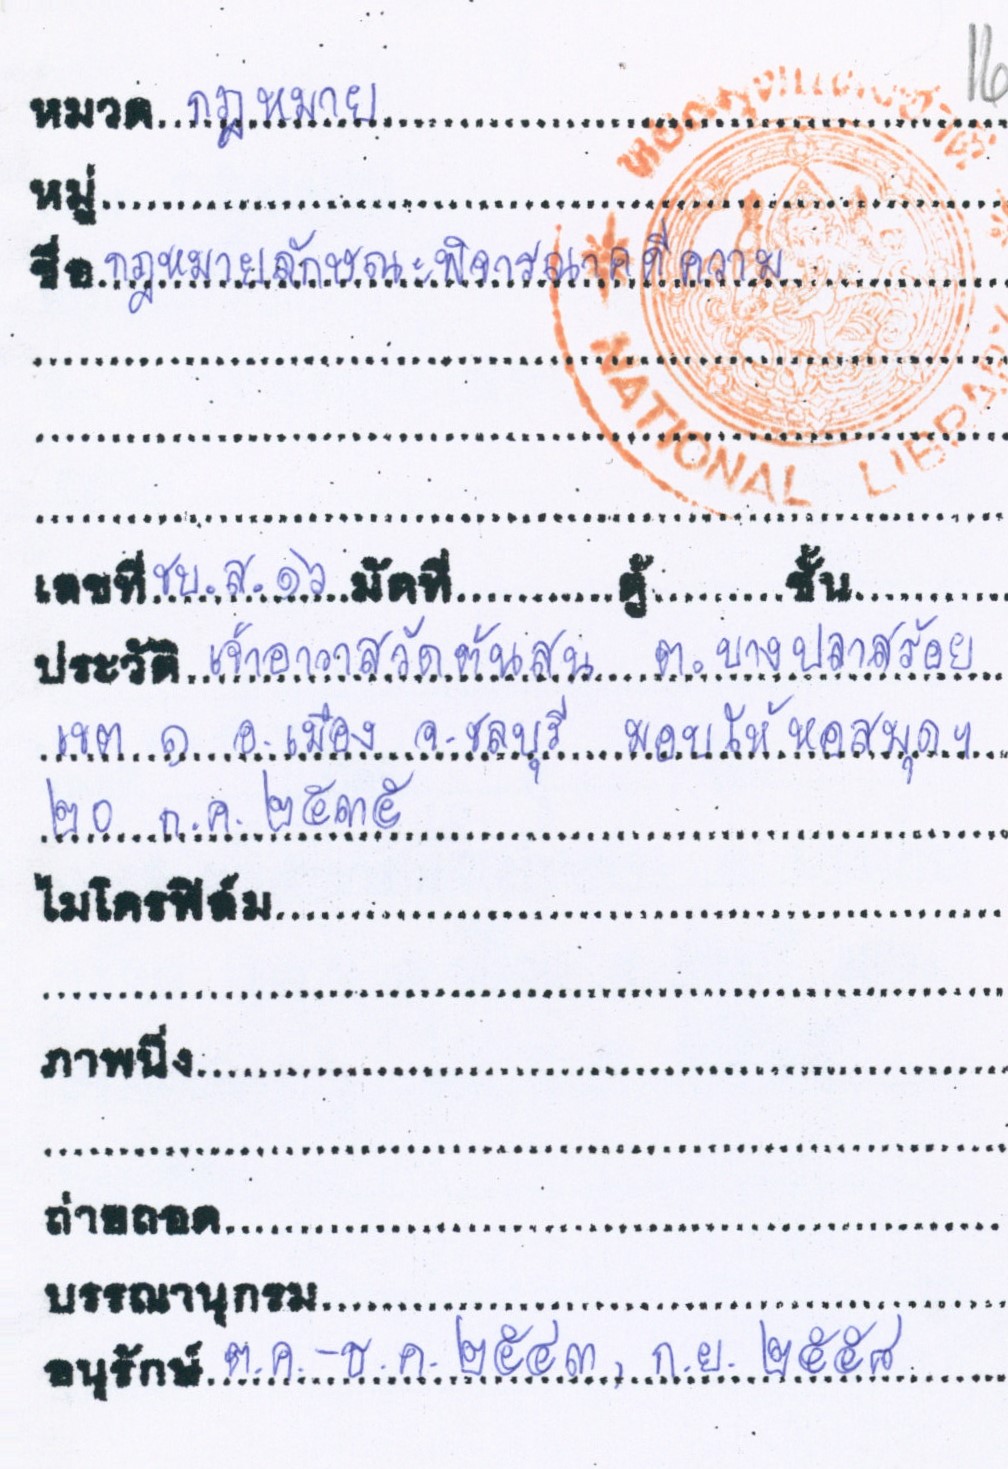 16
หมวด กฎหมาย
หอสมุดแห่งชาติ
หมู่
ชื่อ กฎหมายลักษณะพิจารณาคดีความ
NATIONAL LIBRARY
เลขที่ ชบ.ส.๑๖ มัดที่ ตู้ ชั้น
ประวัติ เจ้าอาวาสวัดต้นสน ต.บางปลาสร้อย
เขต ๑ อ.เมือง จ.ชลบุรี มอบให้หอสมุดฯ
๒๐ ก.ค. ๒๕๓๕
ไมโครฟิล์ม
ภาพนิ่ง
ถ่ายถอด
บรรณานุกรม
อนุรักษ์ ต.ค.-ธ.ค. ๒๕๔๓, ก.ย. ๒๕๕๘